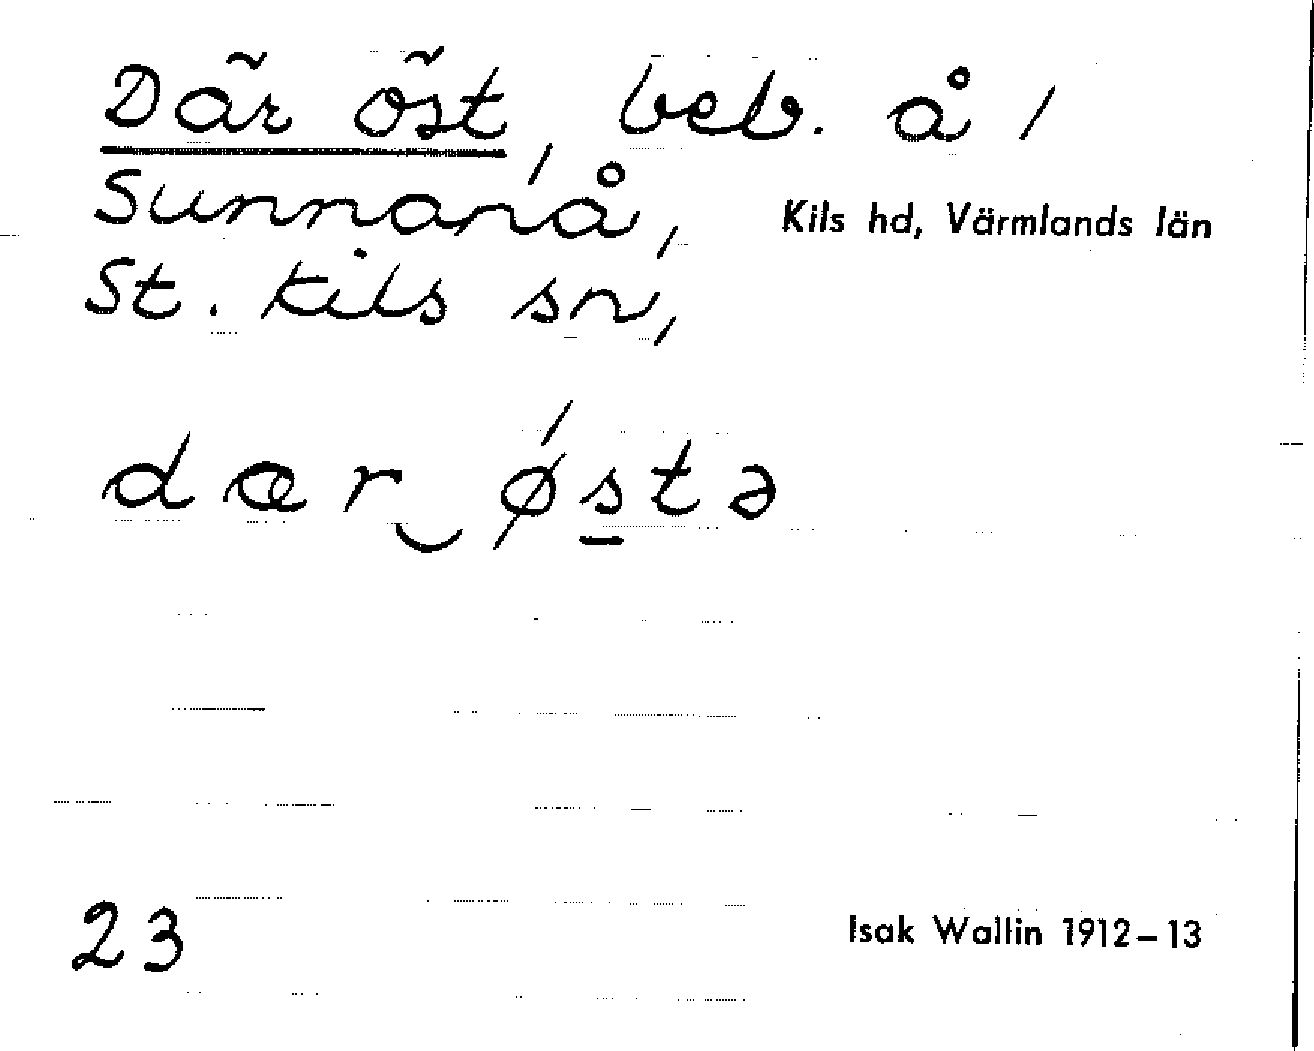 Där öst, beb. å /
Sunnanå,
Kils hd, Värmlands län
St. Kils sn,
dær‿ǿsta
23
Isak Wallin 1912–13